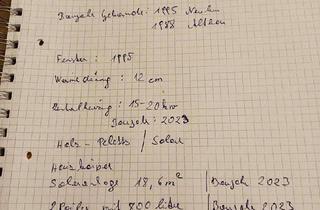 Baujahr Gebäude: 1995 Neubau
1988 Altbau
Fenster: 1995
Wärmedämg: 12 cm
15-20 kw
Baujahr: 2023
Holz-Pellets / Solar
Heizkörper
Solaranlage 18,6 m² / Baujahr 2023
mit 800 liter / Baujahr 2023